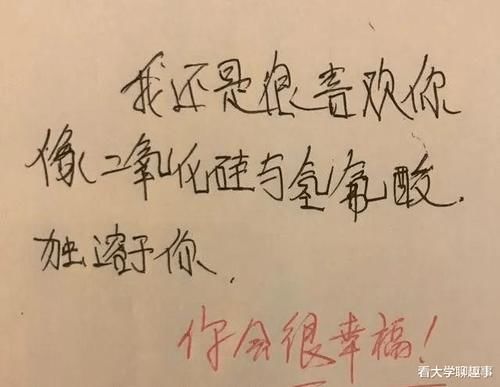 我还是很喜欢你
像二氧化硅与氢氟酸.
独溶于你.
你会很幸福!
看大学聊趣事